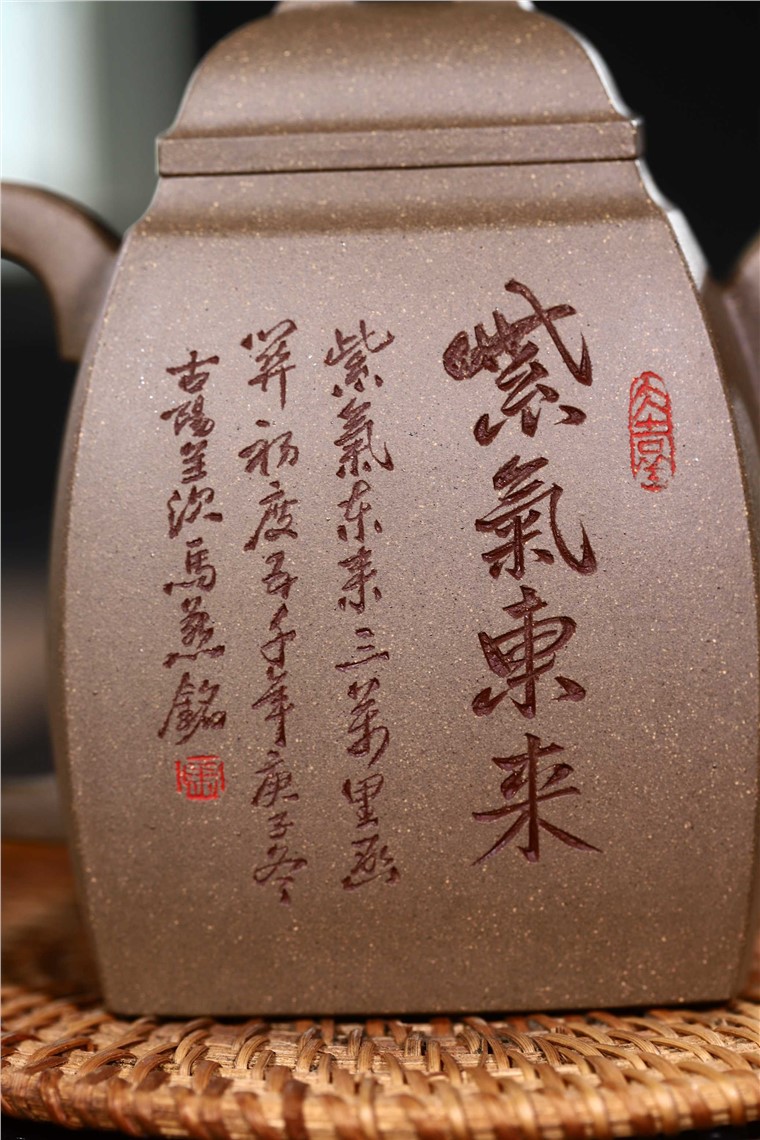 紫氣東来
紫氣东来三萬里函
関初度五千年庚子冬
古陽羡馬燕銘